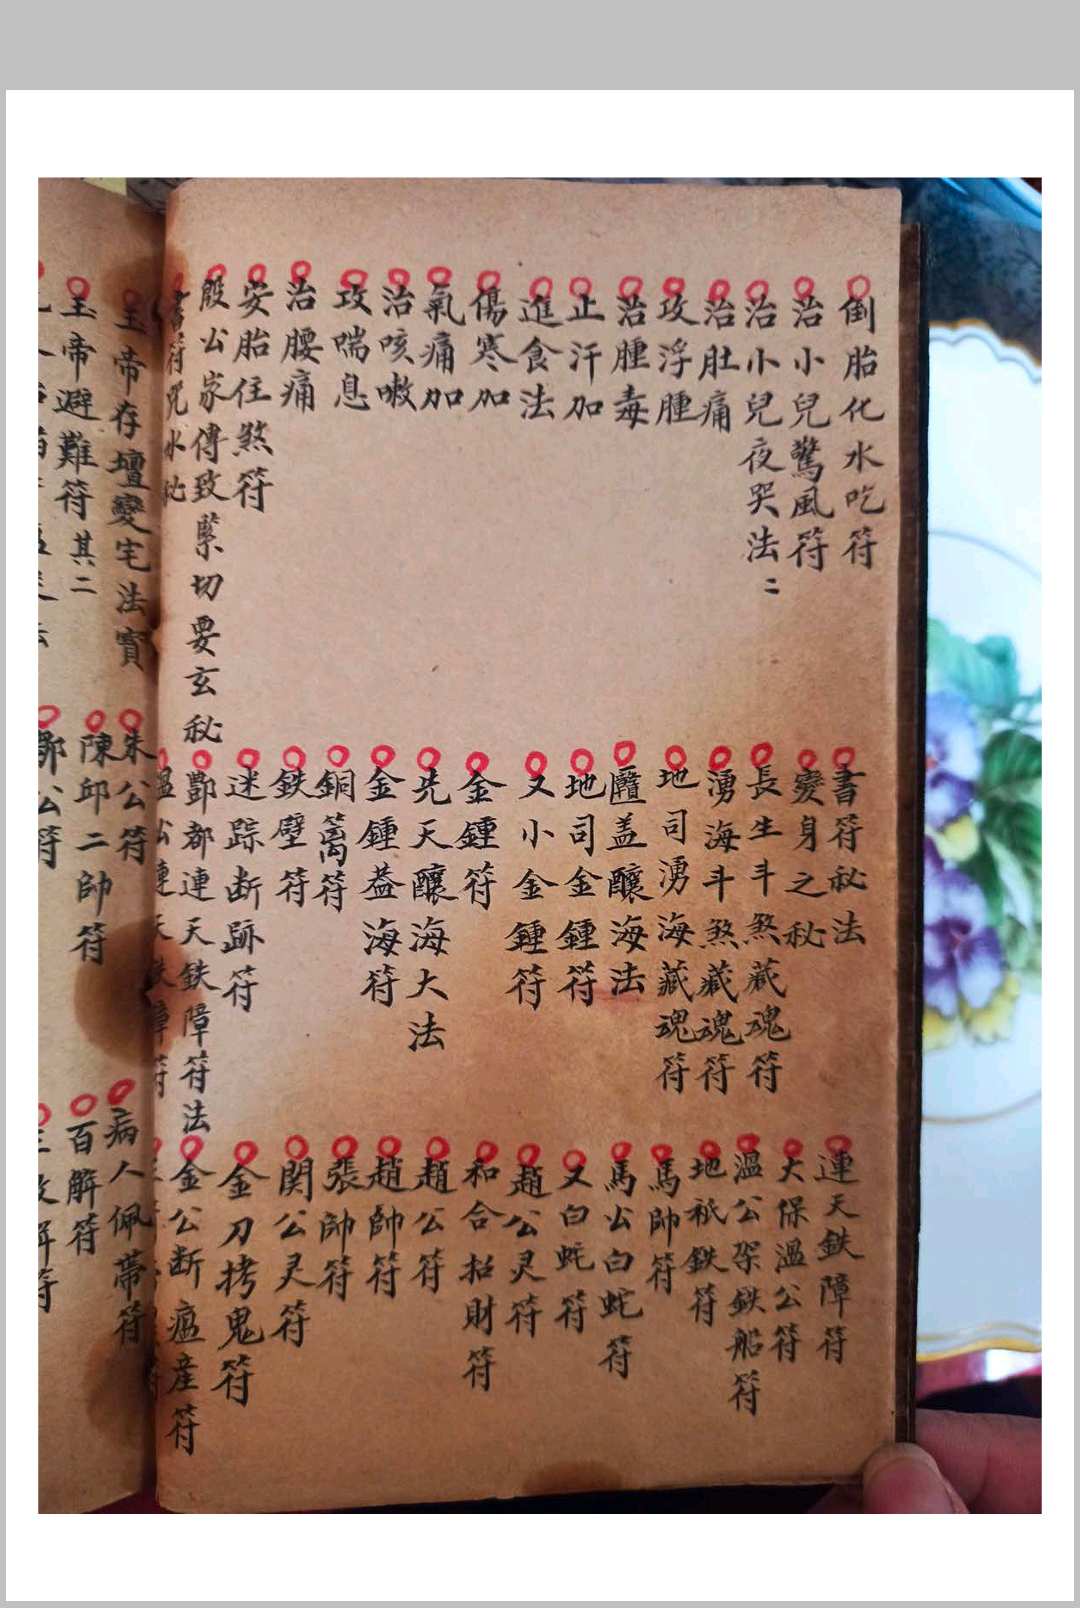 倒胎化水吃符
治小兒驚風符
治小兒夜哭法二
治肚痛
攻浮腫
治腫毒
止汗加
進食法
傷寒加
氣痛加
治咳嗽
攻喘息
治腰痛
安胎住煞符
殷公家傳致緊切要玄秘
書符咒水
書符秘法
變身之秘
長生斗煞藏魂符
湧海斗煞藏魂符
地司湧海藏魂符
蓋釀海法
地司金鍾符
又小金鍾符
金鍾符
先天釀海大法
金鍾葢海符
銅篱符
鉄壁符
迷踪断跡符
酆都連天鉄障符法
連天鉄障符
大保溫公符
溫公架鉄船符
地祇鉄符
馬帥符
馬公白蛇符
又白蛇符
趙公灵符
和合招財符
趙公符
趙帥符
張帥符
関公灵符
金刀拷鬼符
金公断瘟産符
玉帝存壇變宅法寳
玉帝避難符其二
朱公符
陳邱二帥符
公符
病人佩帶符
百解符